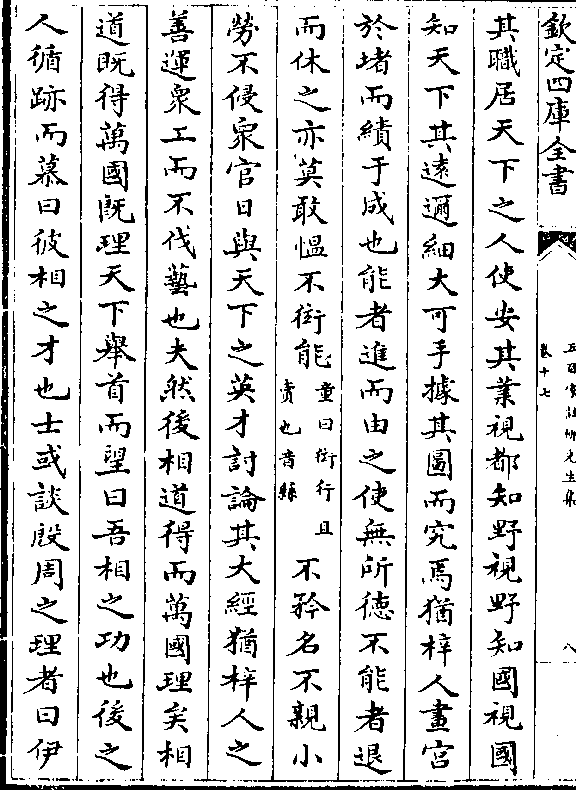 欽定四庫全書
五百家註柳先生集
卷十七
八
其職居天下之人使安其業視都知野視野知國視國
知天下其遠邇細大可手據其圖而究焉猶梓人畫宮
於堵而績于成也能者進而由之使無所德不能者退
而休之亦莫敢慍不衒能童曰衒行且賣也音縣不矜名不親小
勞不侵衆官日與天下之英才討論其大經猶梓人之
善運衆工而不伐藝也夫然後相道得而萬國理矣相
道既得萬國既理天下舉首而望曰吾相之功也後之
人循跡而慕曰彼相之才也士或談殷周之理者曰伊